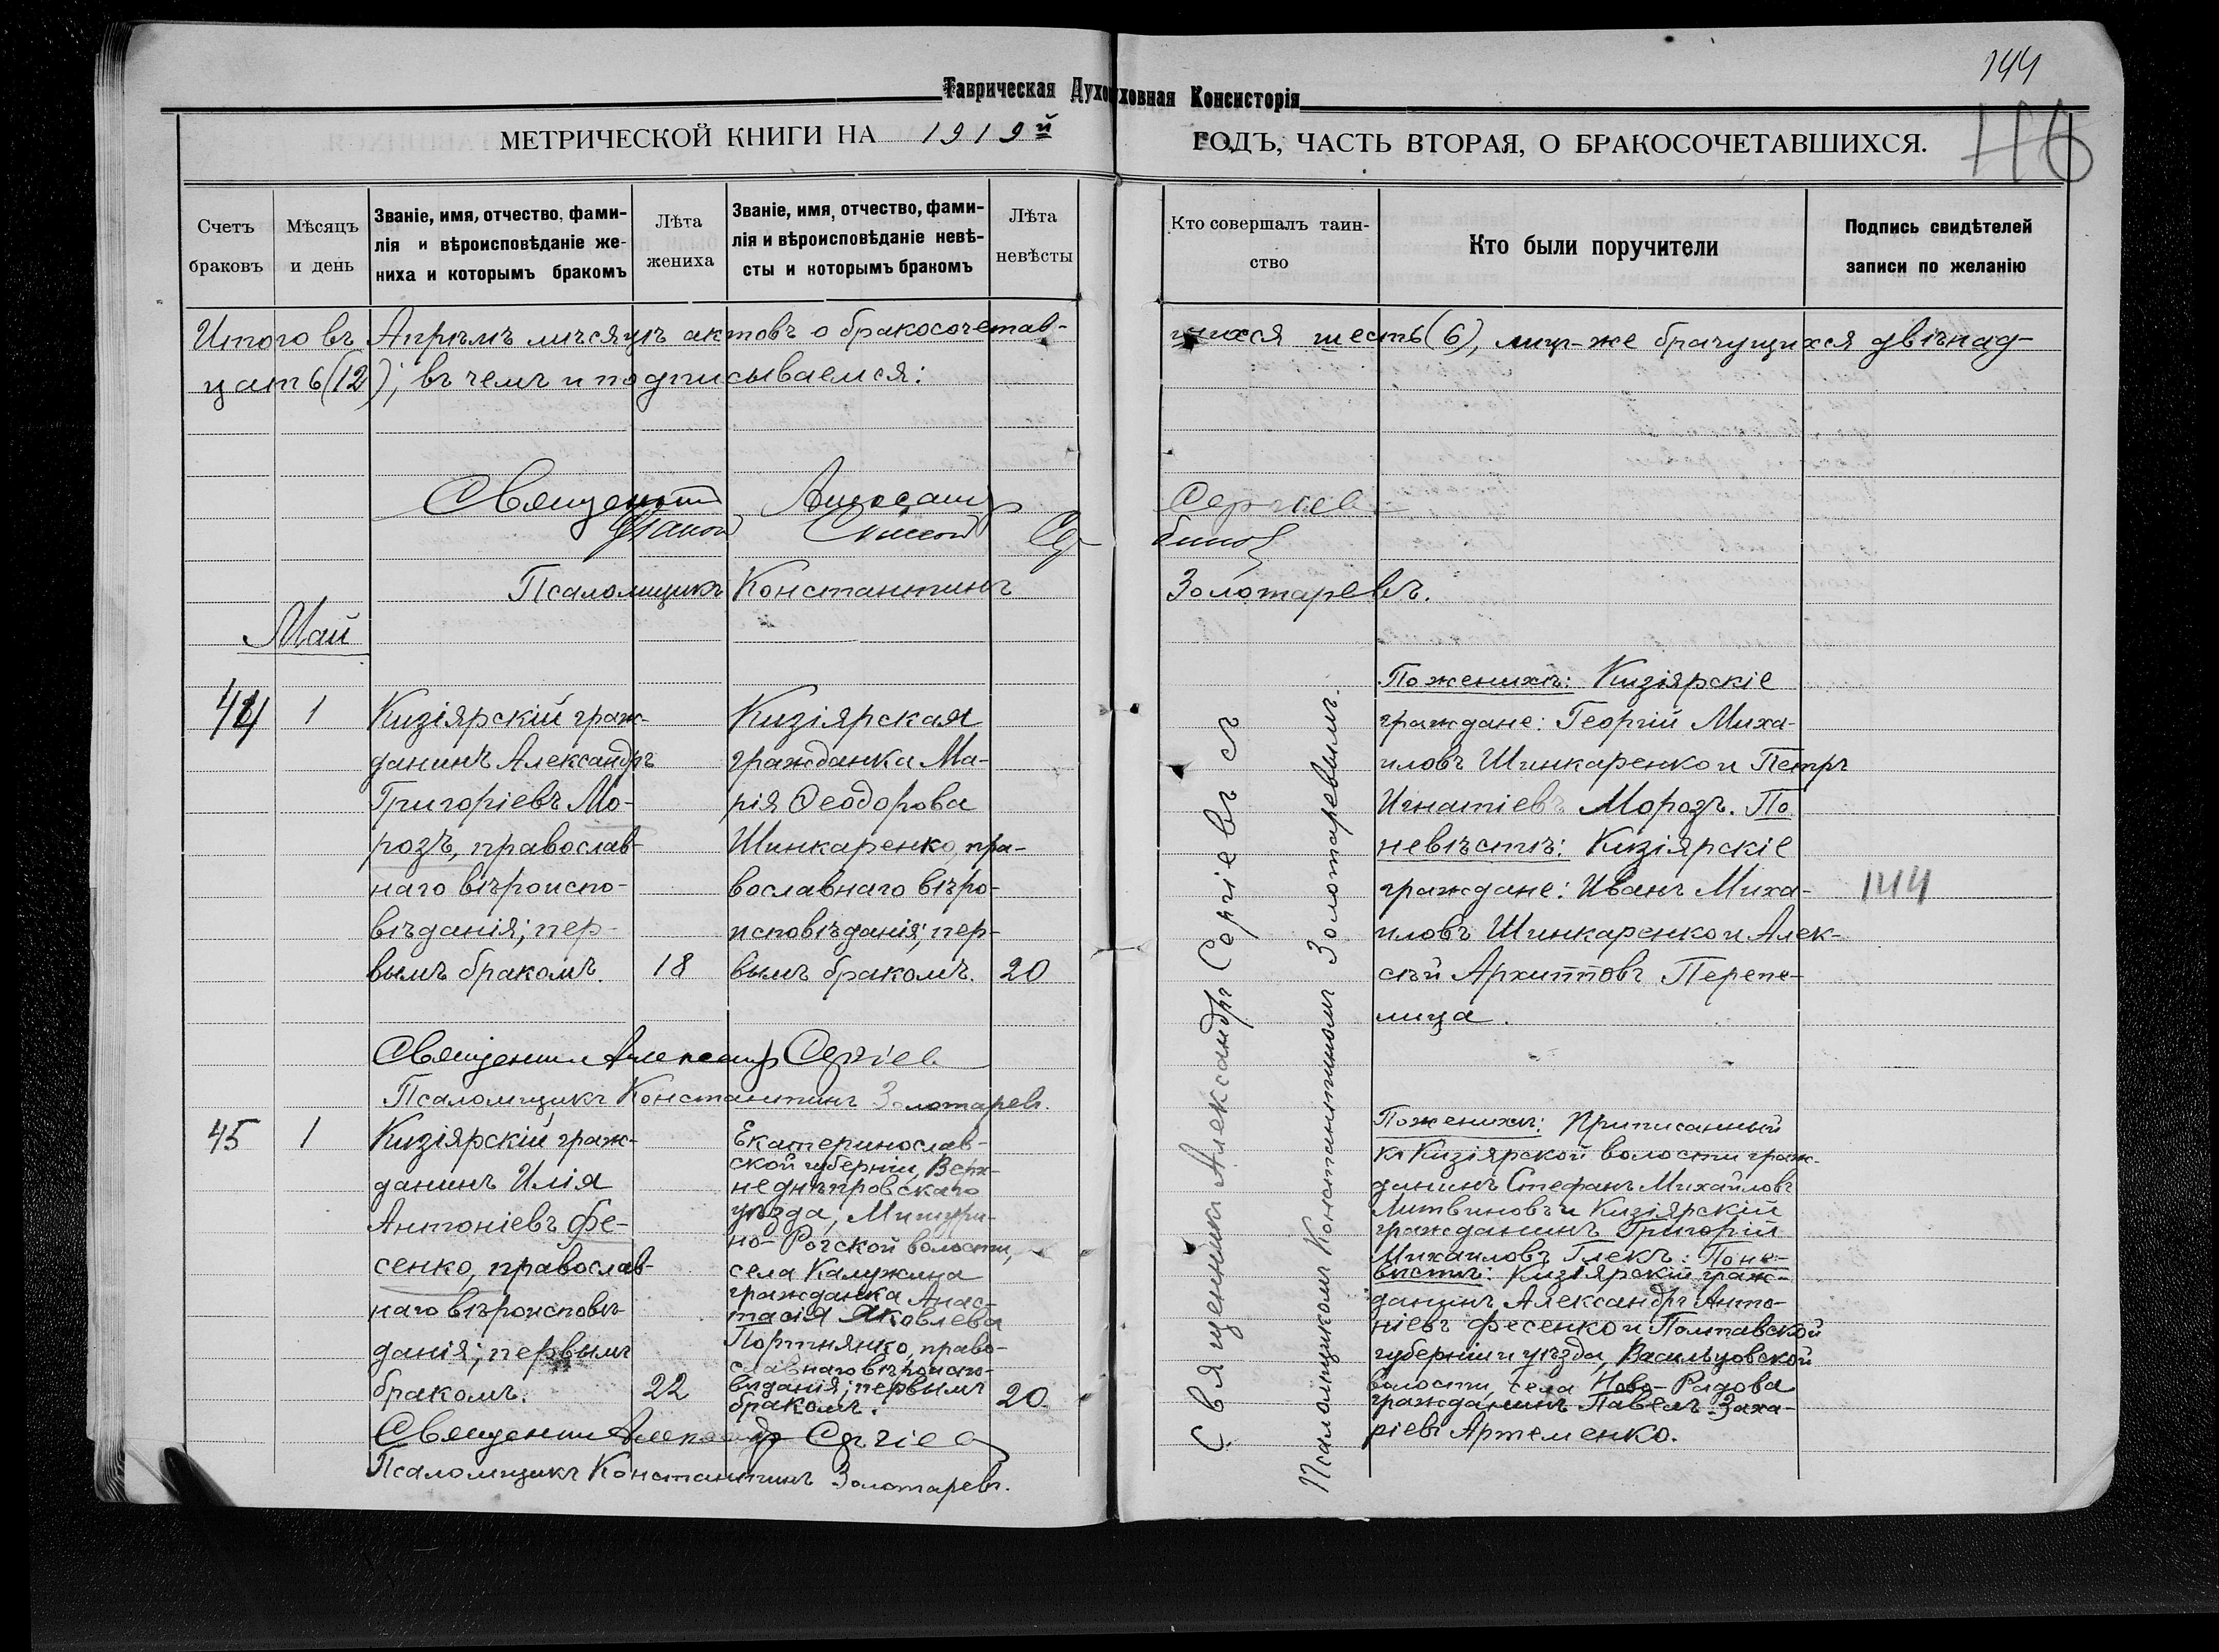 144
Таврическая Духовная Консисторія
МЕТРИЧЕСКОЙ КНИГИ НА 1919й ГОДЪ, ЧАСТЬ ВТОРАЯ, О БРАКОСОЧЕТАВШИХСЯ.
116
Счетъ браковъ
Мѣсяцъ и день
Званіе, имя, отчество, фами-
лія и вѣроисповѣданіе же-
ниха и которымъ бракомъ
Лѣта
жениха
Званіе, имя, отчество, фами-
лія и вѣроисповѣданіе невѣ-
сты и которымъ бракомъ
Лѣта
невѣсты
Кто совершалъ таин-
ство
Кто были поручители
Подпись свидѣтелей
записи по желанію
Итого въ Апрѣлѣ мѣсяцѣ актовъ о бракосочетав-
шихся шесть (6), лицъ-же брачущихся двѣнад-
цать (12); въ чемъ и подписываемся:
Священник Александр Сергіев
Псаломщикъ Константинъ Золотаревъ.
Май
44
1
Кизіярскій граж-
данинъ Александръ
Григоріевъ Мо-
розъ, православ-
наго вѣроиспо-
вѣданія; пер-
вымъ бракомъ.
18
Кизіярская
гражданка Ма-
рія Ѳеодорова
Шинкаренко, пра-
вославнаго вѣро-
исповѣданія; пер-
вымъ бракомъ.
20
Священникъ Александръ Сергіевъ съ
Псаломщикомъ Константиномъ Золотаревымъ.
По женихѣ: Кизіярскіе
граждане: Георгій Миха-
иловъ Шинкаренко и Петръ
Игнатіевъ Морозъ. По
невѣстѣ: Кизіярскіе
граждане: Иванъ Миха-
иловъ Шинкаренко и Алек-
сѣй Архиповъ Перепе-
лица.
144
Священник Александр Сергіев
Псаломщикъ Константинъ Золотаревъ.
45
1
Кизіярскій граж-
данинъ Илія
Антоніевъ Фе-
сенко, православ-
наго вѣроисповѣ-
данія; первымъ
бракомъ.
22
Екатеринослав-
ской губерніи, Верх-
неднѣпровскаго
уѣзда, Мишури-
но-Рогской волости,
села Калужина
гражданка Анас-
тасія Яковлева
Портнянко, право-
славнаго вѣроиспо-
вѣданія; первымъ
бракомъ.
20
По женихѣ: Приписанный
къ Кизіярской волости граж-
данинъ Стефанъ Михайловъ
Литвиновъ и Кизіярскій
гражданинъ Григорій
Михаиловъ Глекъ: По не-
вѣстѣ: Кизіярскій граж-
данинъ Александръ Анто-
ніевъ Фесенко и Полтавской
губерніи и уѣзда, Васильцовской
волости, села Ново-Рядова
гражданинъ Павелъ Заха-
ріевъ Артеменко.
Священник Александр Сергіев
Псаломщикъ Константинъ Золотаревъ.